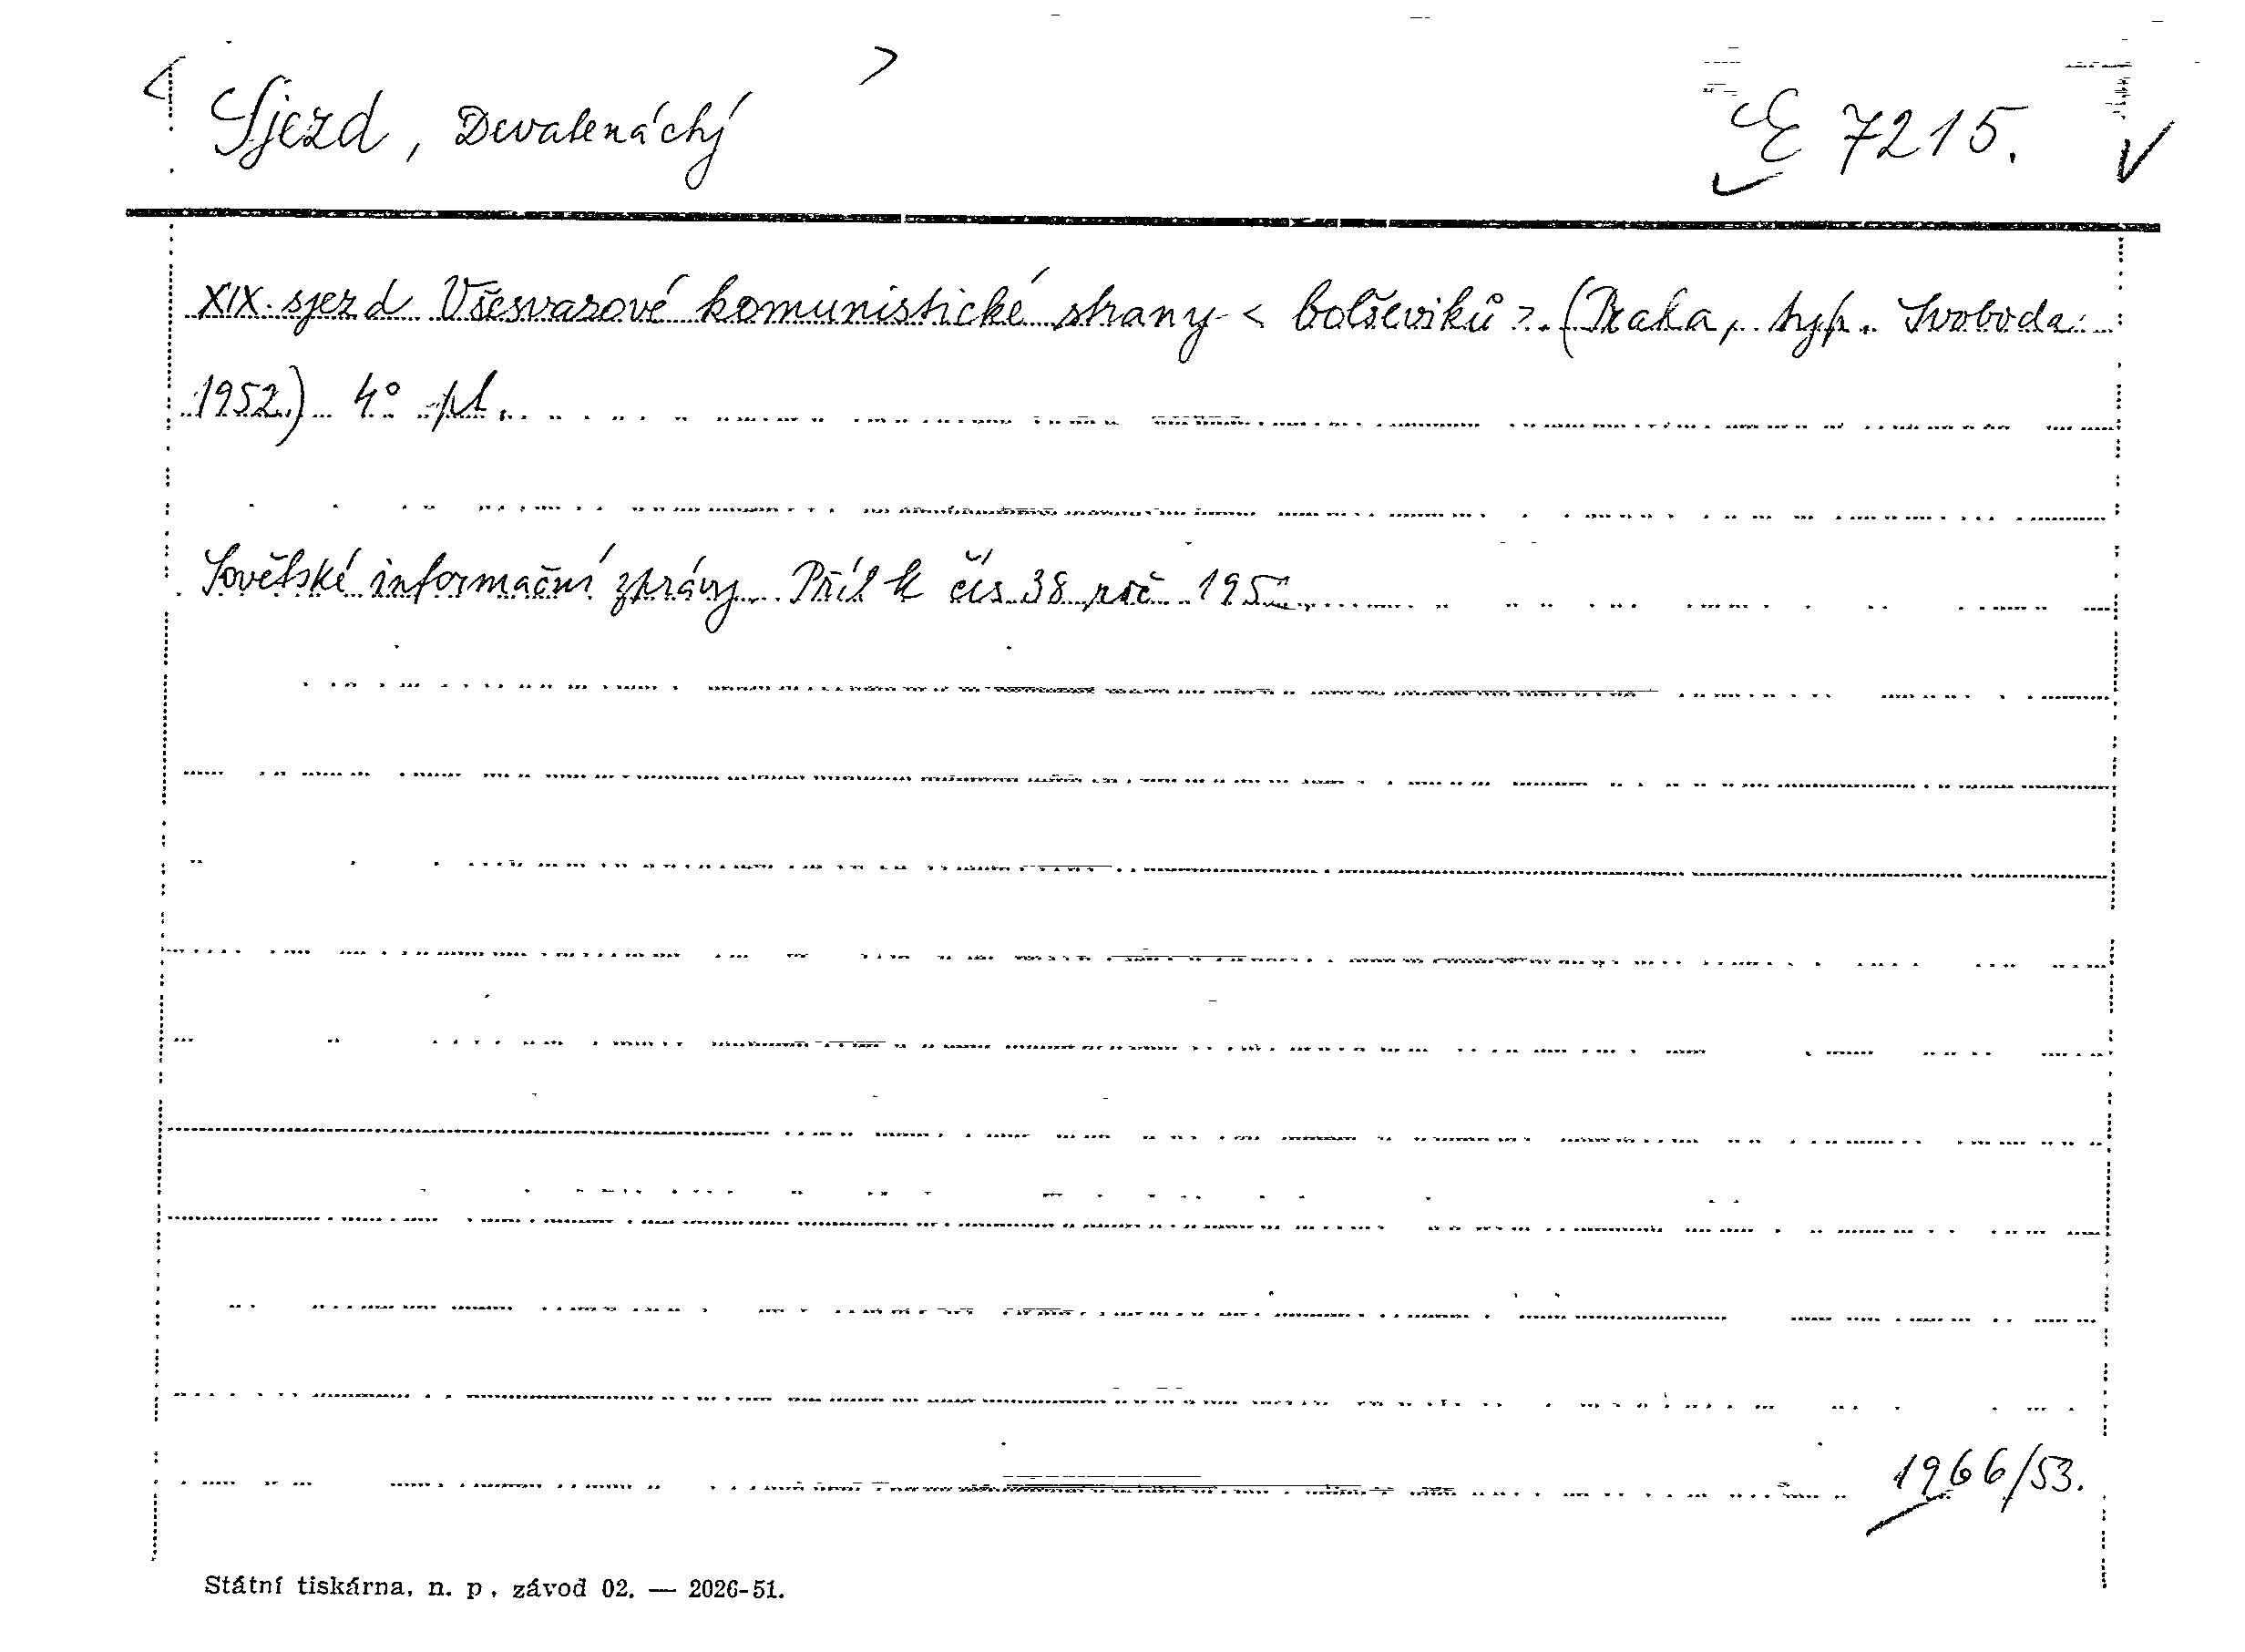 < Sjezd, Devatenáctý > E 7215.
XIX. sjezd Všesvazové komunistické strany < bolševiků >. (Praha, typ. Svoboda
1952.) 4° pl.
Sovětské informační zprávy. Příl k čís 38 roč 195
1966/53.
Státní tiskárna, n. p. závod 02. — 2026-51.